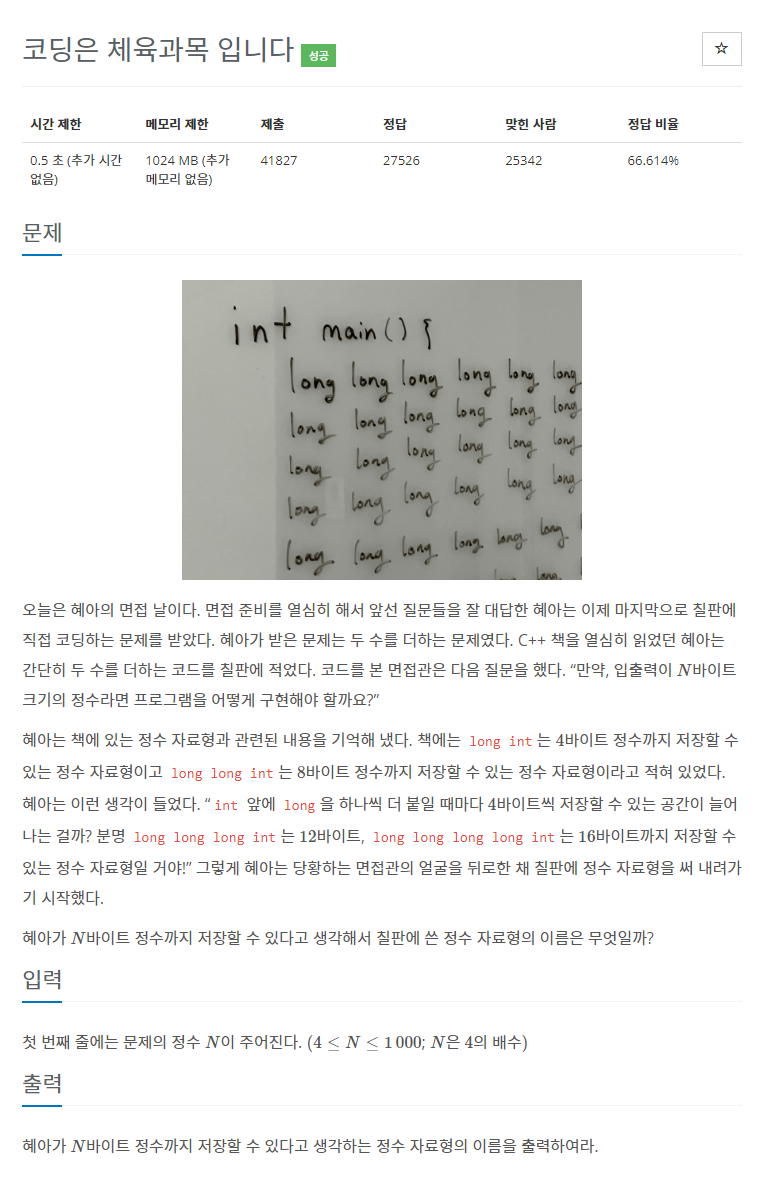 코딩은 체육과목 입니다 성공
☆
시간 제한 메모리 제한 제출 정답 맞힌 사람 정답 비율
0.5 초 (추가 시간 1024 MB (추가 41827 27526 25342 66.614%
없음) 메모리 없음)
문제
int main() {
long long long long long long
long long long long long long
long long long long long long
long long long long long long
long long long long long long
long long
오늘은 혜아의 면접 날이다. 면접 준비를 열심히 해서 앞선 질문들을 잘 대답한 혜아는 이제 마지막으로 칠판에
직접 코딩하는 문제를 받았다. 혜아가 받은 문제는 두 수를 더하는 문제였다. C++ 책을 열심히 읽었던 혜아는
간단히 두 수를 더하는 코드를 칠판에 적었다. 코드를 본 면접관은 다음 질문을 했다. “만약, 입출력이 N바이트
크기의 정수라면 프로그램을 어떻게 구현해야 할까요?”
혜아는 책에 있는 정수 자료형과 관련된 내용을 기억해 냈다. 책에는 long int 는 4바이트 정수까지 저장할 수
있는 정수 자료형이고 long long int 는 8바이트 정수까지 저장할 수 있는 정수 자료형이라고 적혀 있었다.
혜아는 이런 생각이 들었다. “ int 앞에 long 을 하나씩 더 붙일 때마다 4바이트씩 저장할 수 있는 공간이 늘어
나는 걸까? 분명 long long long int 는 12바이트, long long long long int 는 16바이트까지 저장할 수
있는 정수 자료형일 거야!” 그렇게 혜아는 당황하는 면접관의 얼굴을 뒤로한 채 칠판에 정수 자료형을 써 내려가
기 시작했다.
혜아가 N바이트 정수까지 저장할 수 있다고 생각해서 칠판에 쓴 정수 자료형의 이름은 무엇일까?
입력
첫 번째 줄에는 문제의 정수 N이 주어진다. (4 ≤ N ≤ 1 000; N은 4의 배수)
출력
혜아가 N바이트 정수까지 저장할 수 있다고 생각하는 정수 자료형의 이름을 출력하여라.